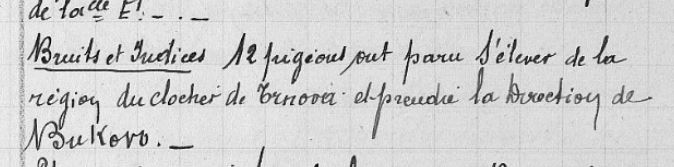 de la cie E! - . -
Bruits et Indices 12 pigeons ont paru s'élever de la
région du clocher de Trnova et prendre la direction de
Bukovo. -